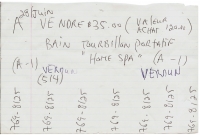 28 Juin
A VENDRE $35.00 (VALEUR ACHAT 120.00)
BAIN TOURBILLON PORTATIF
(A-1) "HOME SPA" (A-1)
VERDUN VERDUN
(514)
769-8125 769-8125 769-8125 769-8125 769-8125 769-8125